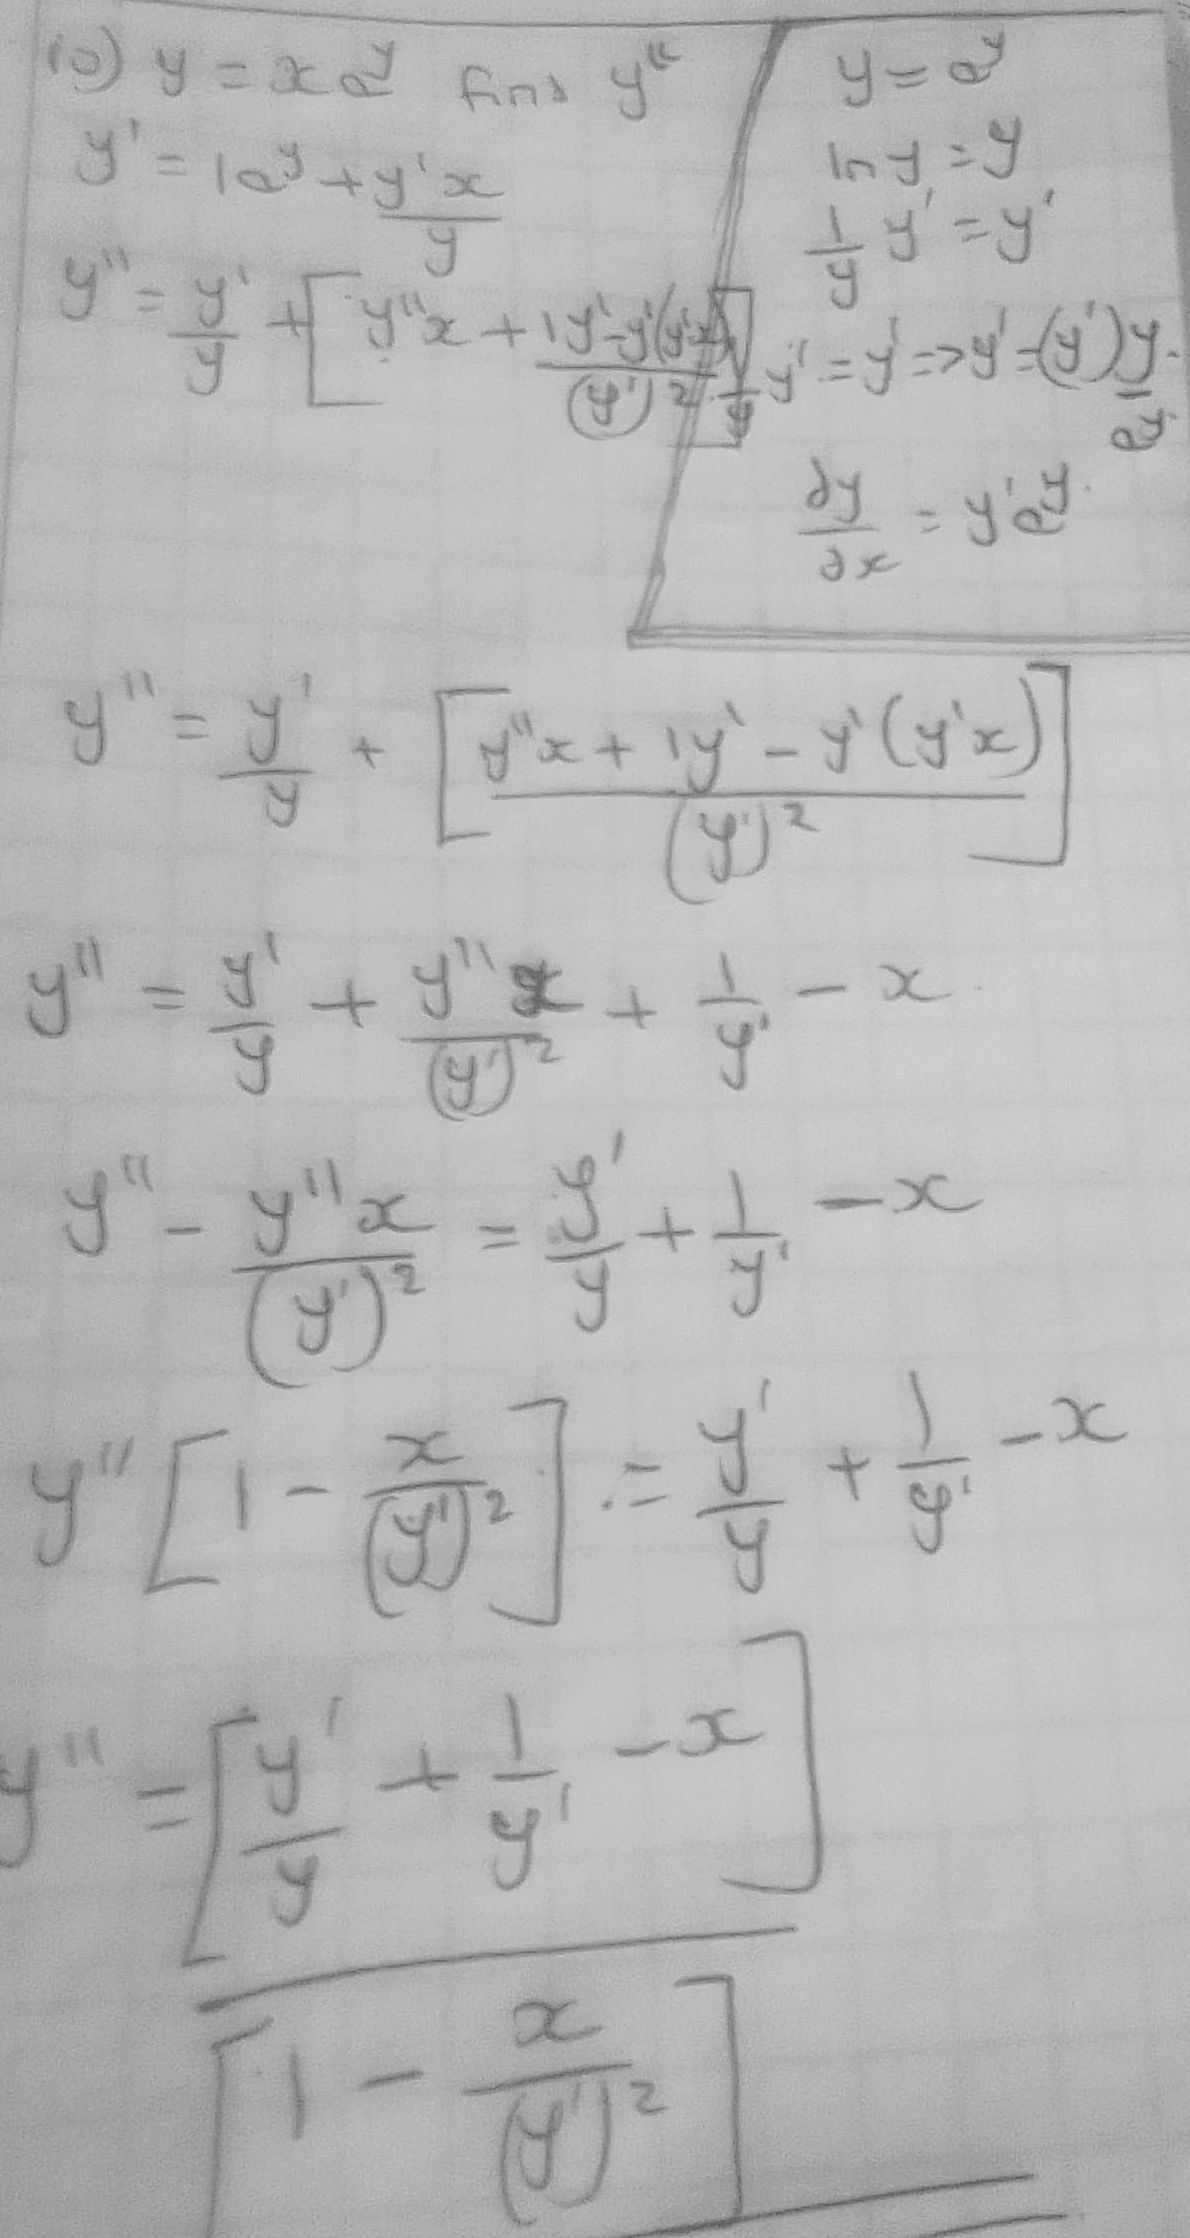 10) y = xe^y find y''
y' = 1e^y + y'x/y
y'' = y'/y + [y''x + 1y' - y'(y'x)/(y')^2]
y = e^y
ln y = y
1/y y' = y'
1/y y' = y' => y' = (y')y.
e^y.
dy/dx = y'e^y.
y'' = y'/y + [(y''x + 1y' - y'(y'x))/(y')^2]
y'' = y'/y + y''x/(y')^2 + 1/y' - x
y'' - y''x/(y')^2 = y'/y + 1/y' - x
y''[1 - x/(y')^2] = y'/y + 1/y' - x
y'' = [y'/y + 1/y' - x]
[1 - x/(y')^2]